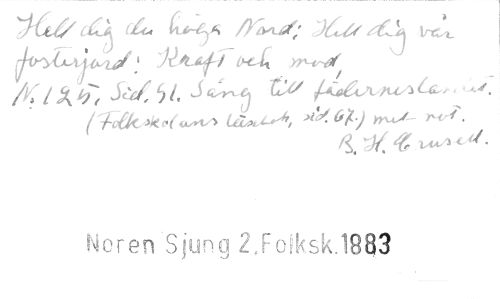 Hell dig du höga Nord; Hell dig vår
fosterjord! Kraft och mod
N. 125, Sid. 51. Sång till fäderneslandet.
(Folkskolans läsebok, sid. 67.) met not.
B. H. Crusell.
Noren Sjung 2, Folksk. 1883